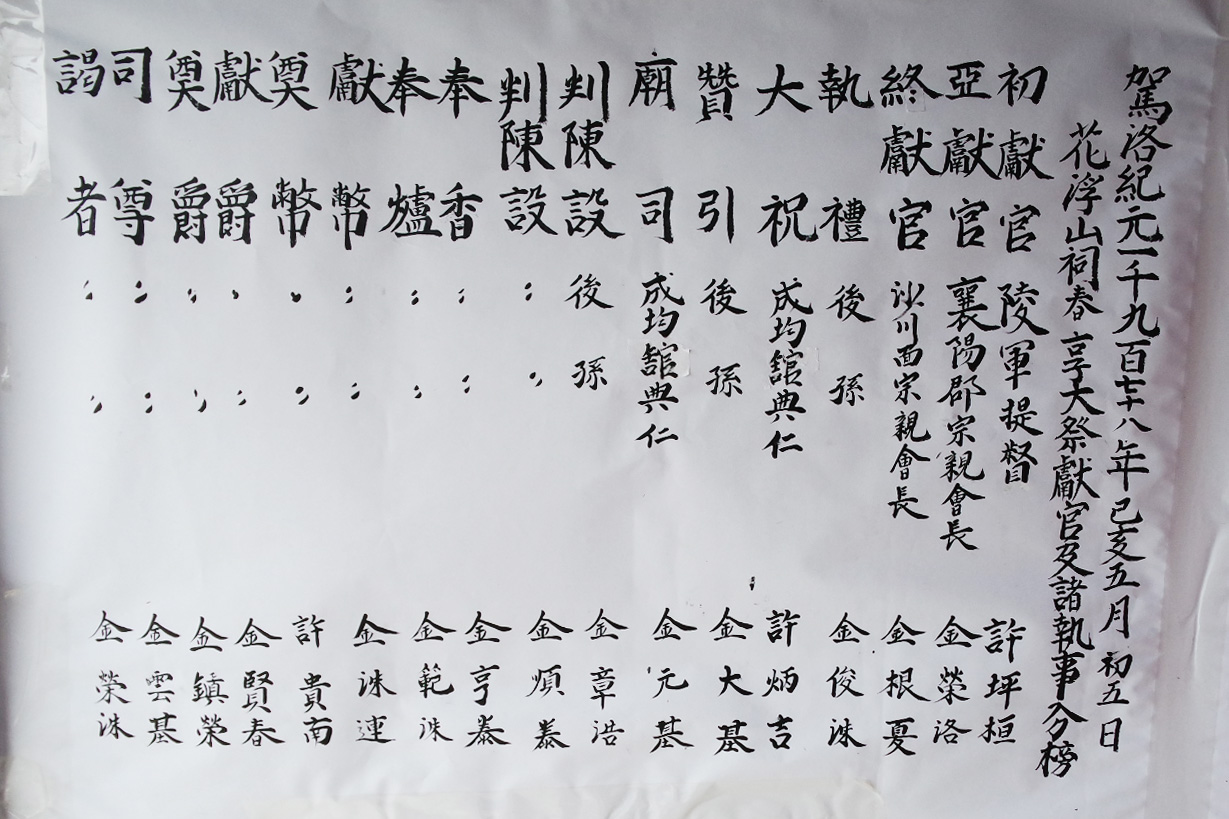 駕洛紀元一千九百七十八年己亥五月初五日
花浮山祠春享大祭獻官及諸執事分榜
初獻官 陵軍提督 許坪桓
亞獻官 襄陽郡宗親會長 金榮洛
終獻官 沙川面宗親會長 金根夏
執禮 後孫 金俊洙
大祝 成均舘典仁 許炳吉
贊引 後孫 金大基
廟司 成均舘典仁 金元基
判陳設 後孫 金章浩
判陳設 〃 〃 金順泰
奉香 〃 〃 金亨泰
奉爐 〃 〃 金範洙
獻幣 〃 〃 金洙連
奠幣 〃 〃 許貴南
獻爵 〃 〃 金賢春
奠爵 〃 〃 金鎮榮
司尊 〃 〃 金雲基
謁者 〃 〃 金榮洙